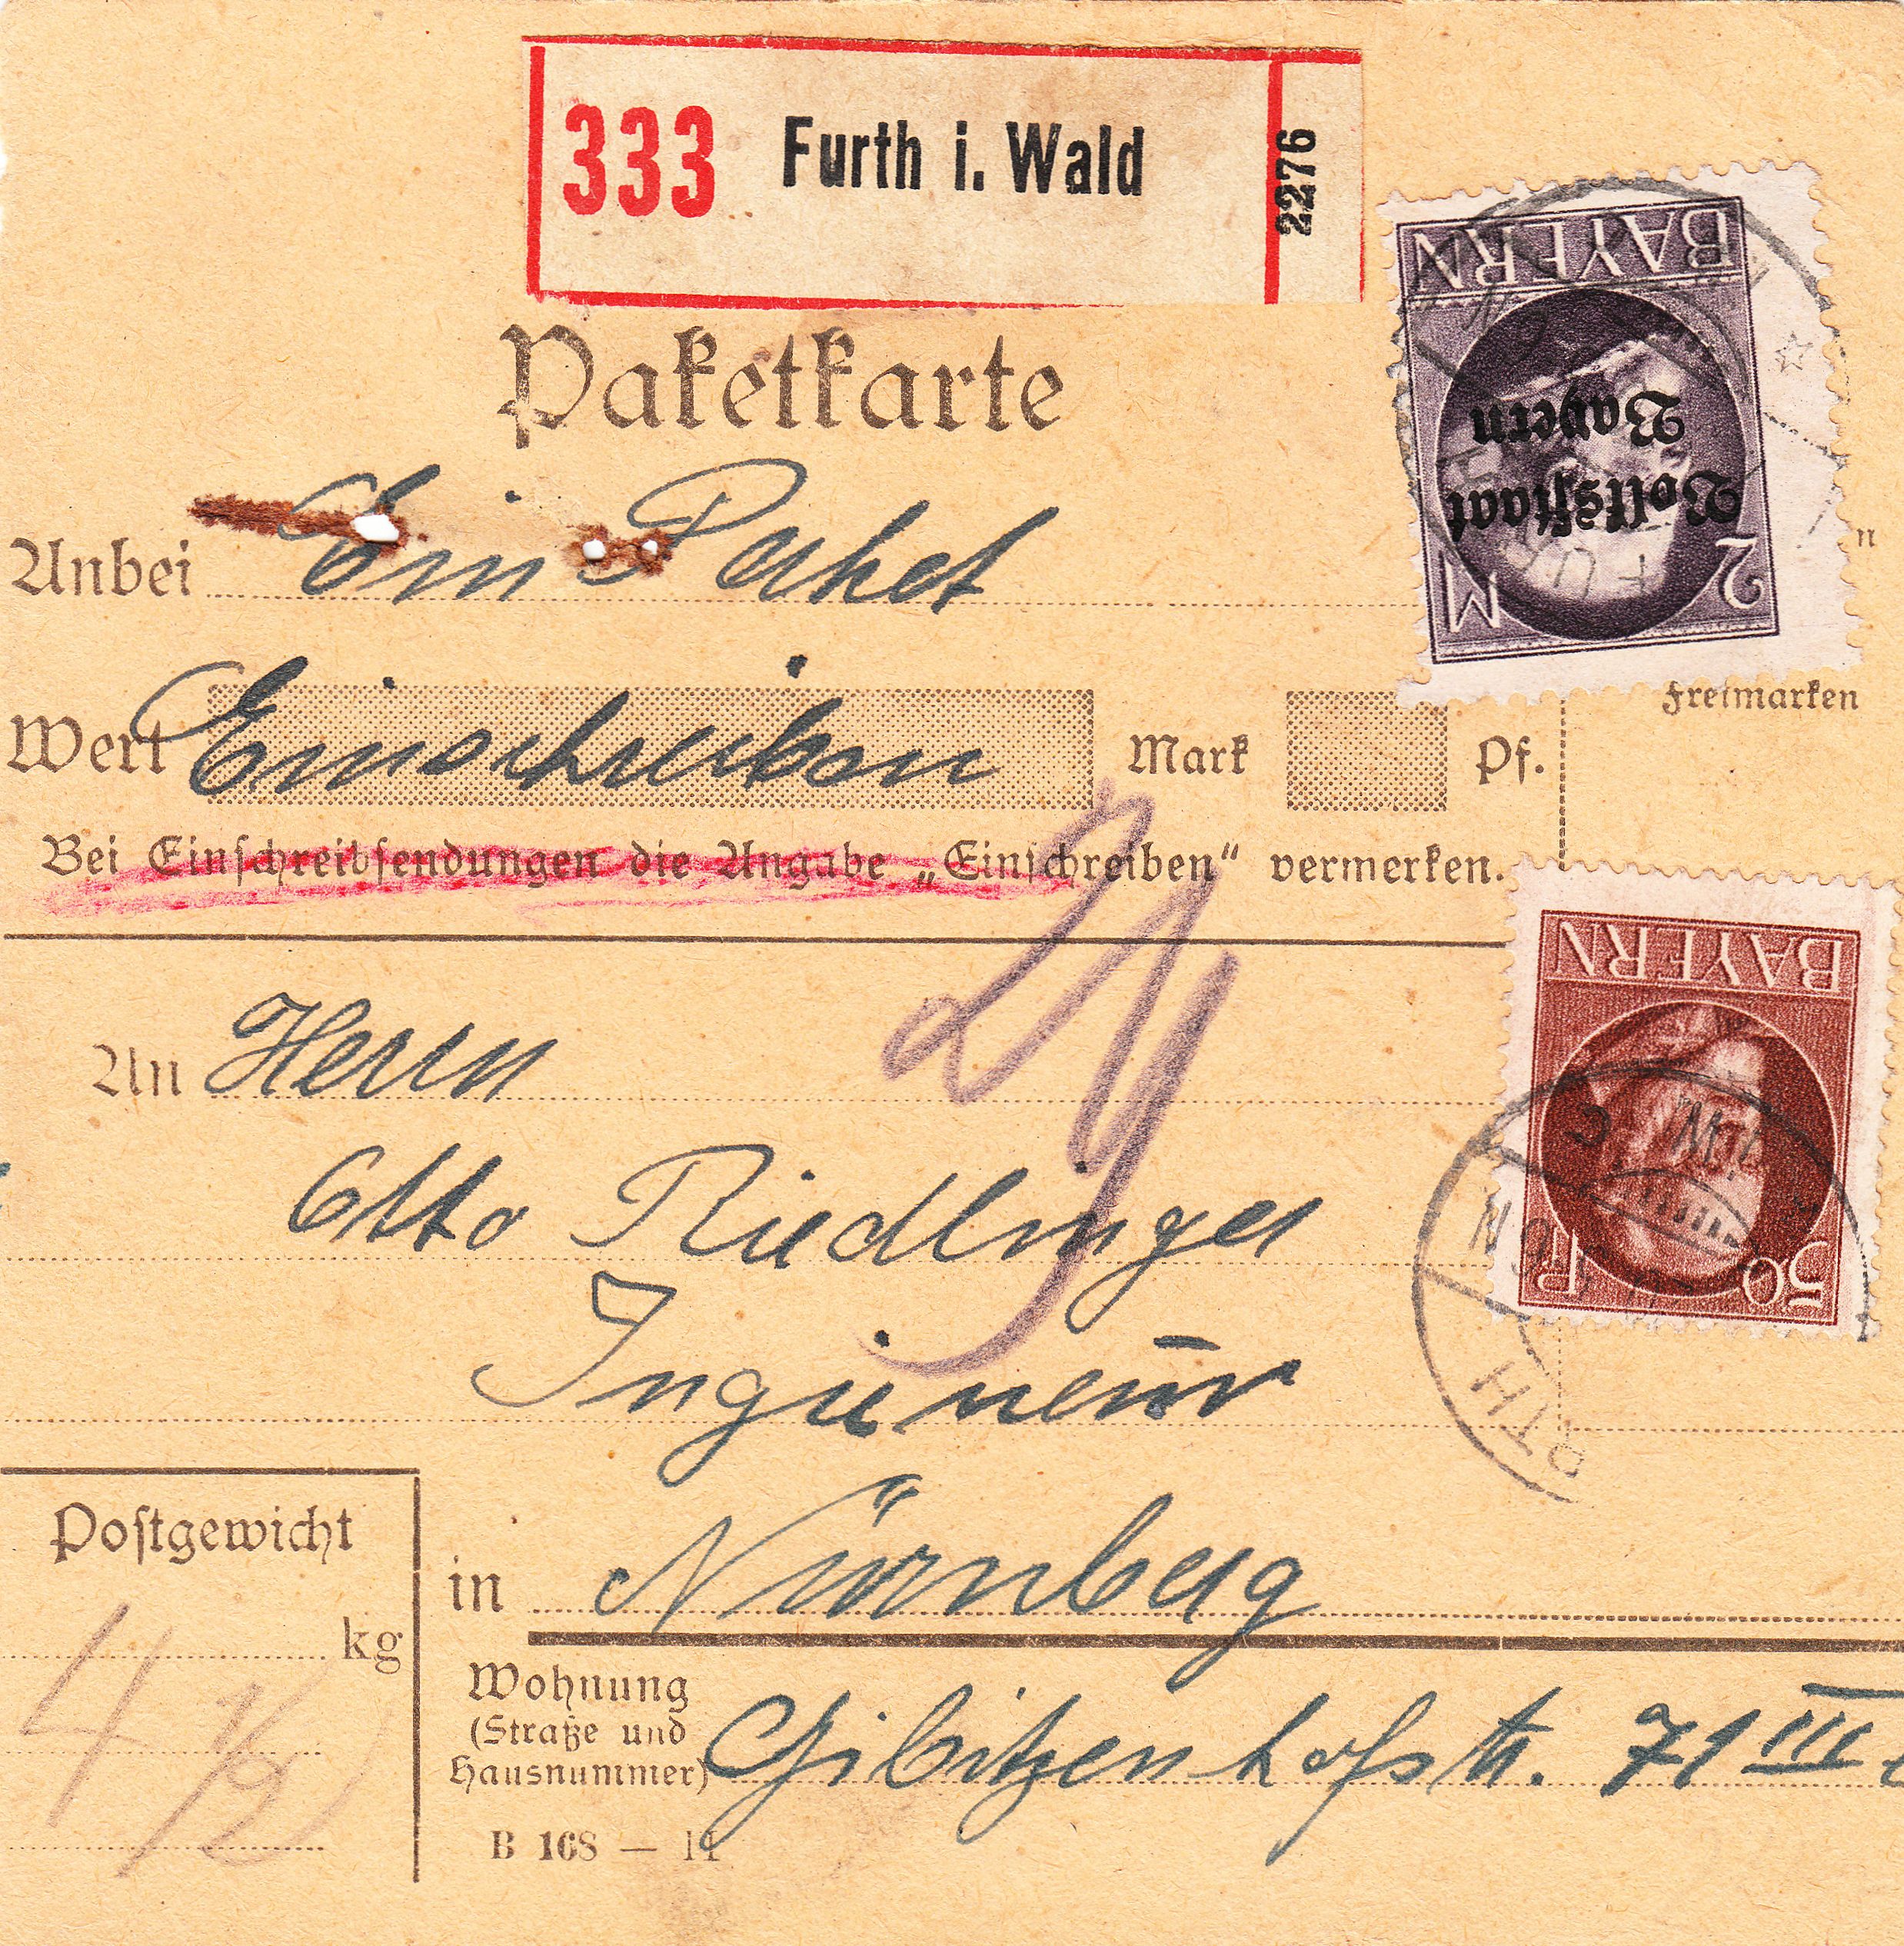 333 Furth i. Wald 2276
Paketkarte
BAYERN
Volksstaat
Bayern
2 M
Anbei Ein Paket
Freimarken
Wert Einschreiben Mark Pf.
Bei Einschreibsendungen die Angabe „Einschreiben“ vermerken.
BAYERN
50 Pf
An Herrn
Otto Riedlinger
Ingenieur
Postgewicht
kg
4 1/2
in Nürnberg
Wohnung
(Straße und
Hausnummer)
Gibitzenhofstr. 71 III
B 168 — 11